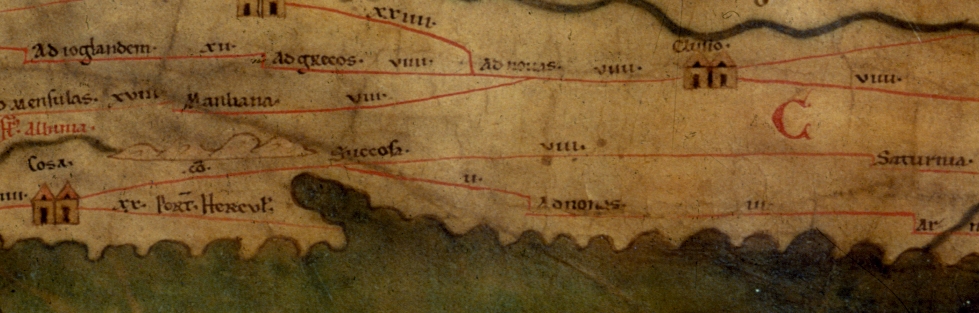 xxiiii.
Ad ioglandem. xii. Ad grecos. viiii. Ad nouas. viiii. Clusio. viiii.
Mensulas. xviii. Manliana. viii.
fl. Albinia.
C
Cosa. co. Succosa. viii. Saturnia.
ii.
xx. Port. Hercul. Ad nonas. iii.
Ar